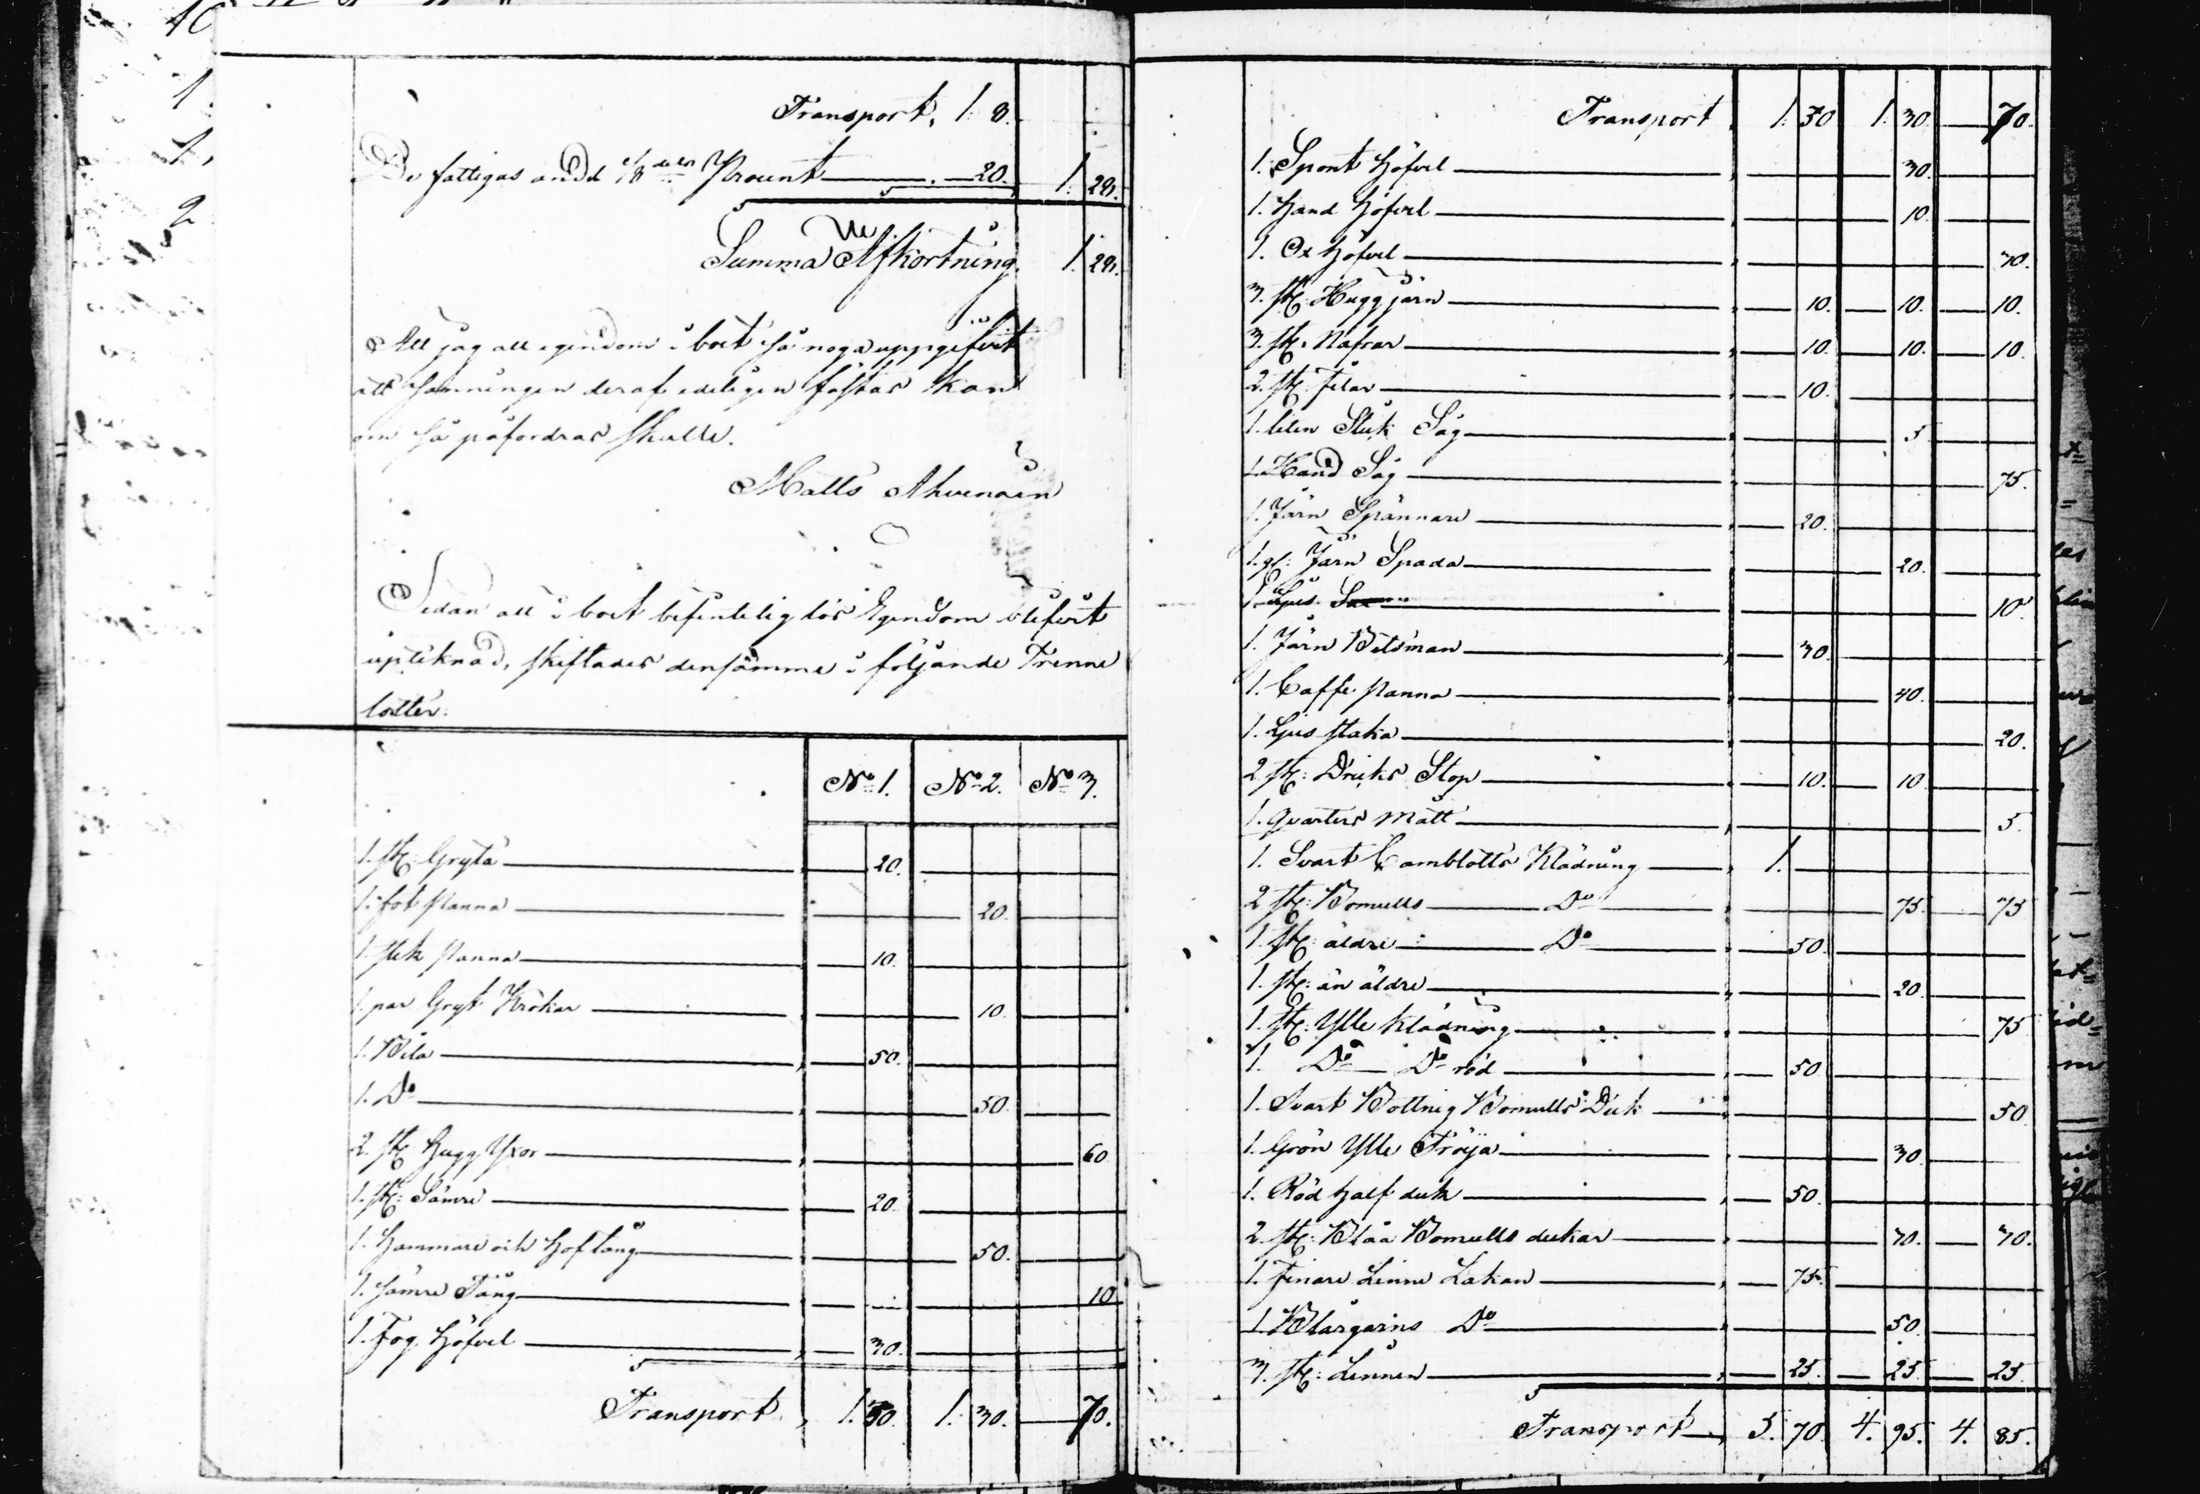 Transport, 1. 8.
De fattigas andel 1/8 dels Procent . 20. 1. 28.
Summa Afkortning 1. 28.
Att jag all egendom i boet så noga uppgifvit
att sanningen deraf edeligen fästas kan
om så påfordras skulle.
Matts Ahvenain
Sedan all i boet befinteliglös Egendom blifvit
uptéknad, skiftades densamma i följande Trenne
lotter:
No 1. No 2. No 3.
1. st: Gryta 20.
1. fot Panna 20.
1. stek Panna 10.
1. par Gryt Krokar 10.
1. Bila 50.
1. Do 50.
2. st: Hugg Yxor 60
1. st: Sämre 20.
1. Hammare och Hoftång 50.
1. sämre Tång 10
1. Fog Höfvel 30.
Transport, 1. 30. 1. 30. 70.
Transport 1. 30 1. 30. 70.
1. Spont Höfvel 30.
1. Hand Höfvel 10.
1. Ox Höfvel 30.
3. st: Huggjärn 10. 10. 10.
3. st: Nafrar 10. 10. 10.
2. st: Filar 10.
1. liten Stick Såg 5
1. Hand Såg 75.
1. Järn Spännare 20.
1. gl: Järn Spada 20.
1. Ljus Sax 10.
1. Järn Bitsman 30.
1. Caffe Panna 40.
1. Ljus staka 20.
2 st: Dricks Stop 10. 10.
1. Qvarters Mått 5.
1. Svart Camblotts Klädning 1.
2 st: Bomulls Do 75. 75
1. st: äldre Do 50.
1. st: än äldre 20.
1. st: Ylle Klädning 75
1. Do Do röd 50
1. Svart Bottnig Bomulls Duk 50
1. Grön Ylle Tröja 30.
1. Röd half duk 50.
2. st: Blåa Bomulls dukar 30. 30.
1. Finare Linne Lakan 75.
1. Blårgarns Do 50.
3. st: Linnen 25. 25 25
Transport 5. 70. 4. 95. 4. 85.